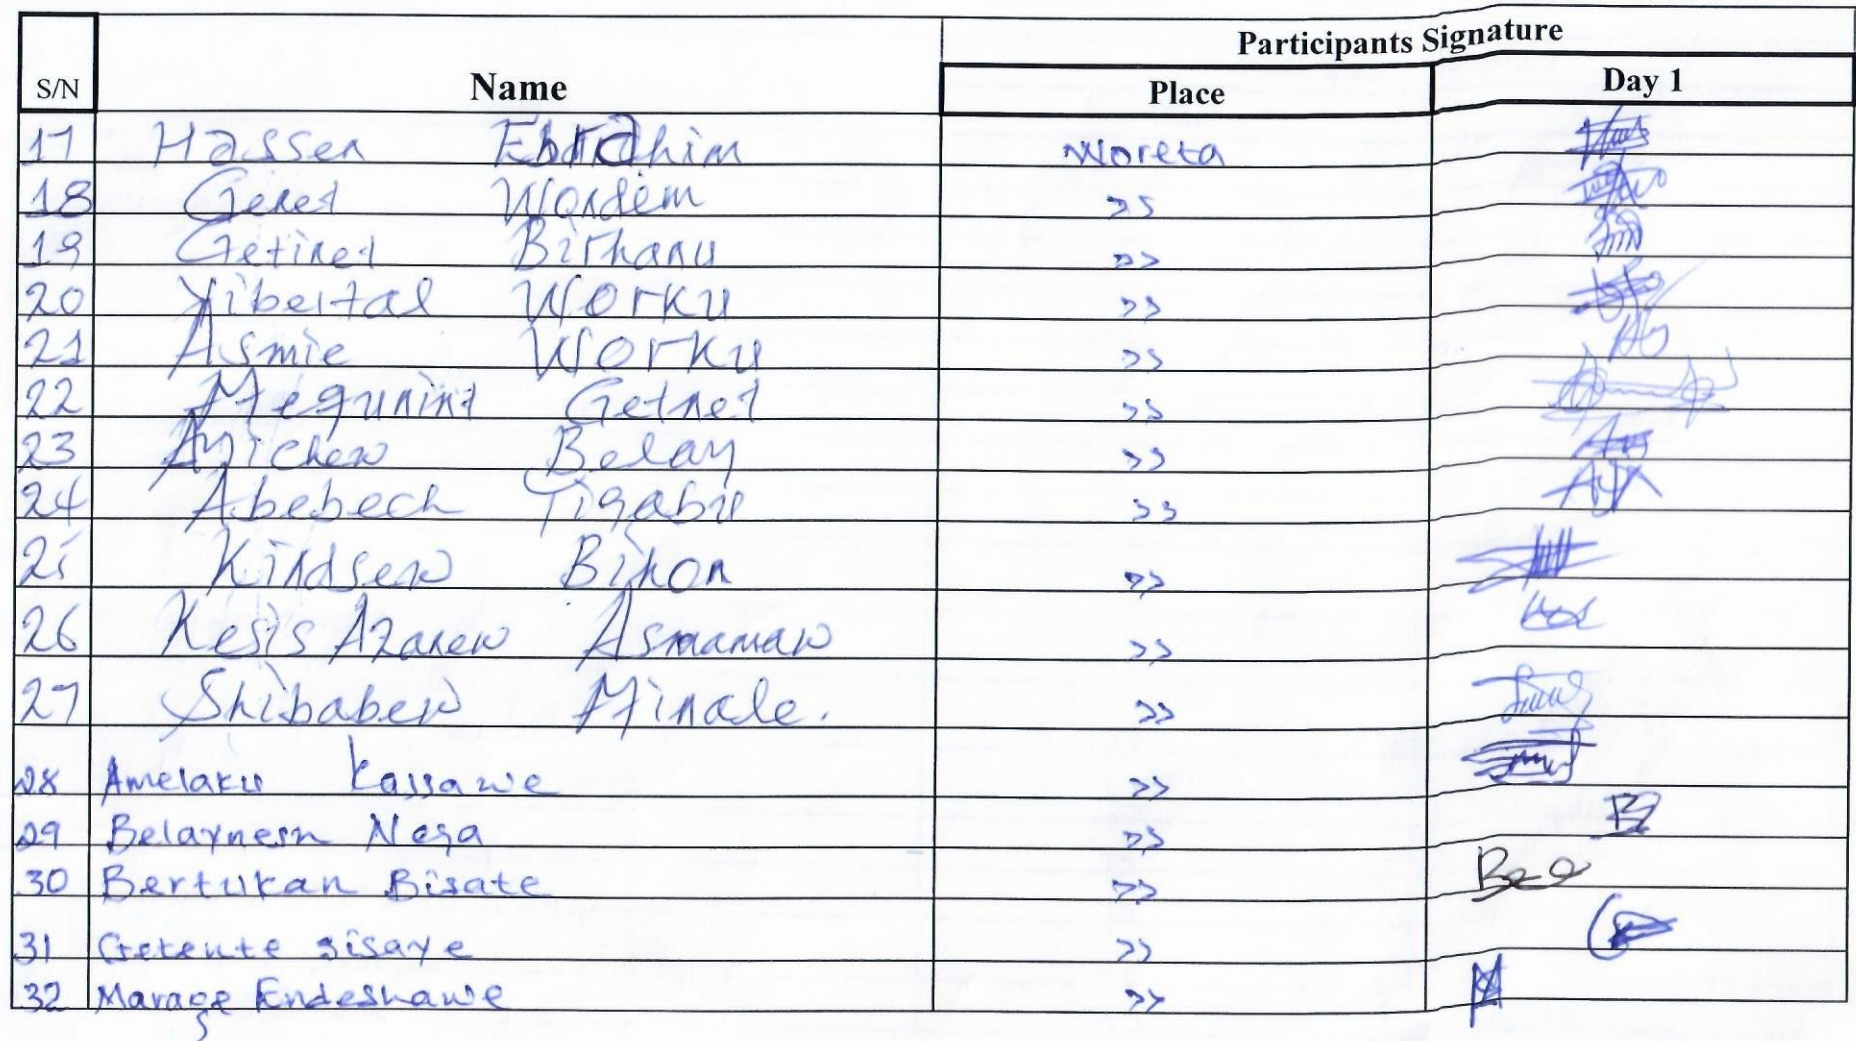 Participants Signature
S/N Name Place Day 1
17 Hassen Ebrahim Woreta
18 Genet Wondem >>
19 Getinet Birhanu >>
20 Yibeltal Worku >>
21 Asmie Worku >>
22 Getnet >>
23 Ayichew Belay >>
24 Abebech Tigabu >>
25 Kindsew Bihon >>
26 Kesis Azanew Asmamaw >>
27 Shibabew Minale. >>
28 Amelaku Kassawe >>
29 Belaynesh Nega >>
30 Bertukan Bisate >>
31 Getente Sisaye >>
32 Marage Endeshawe >>